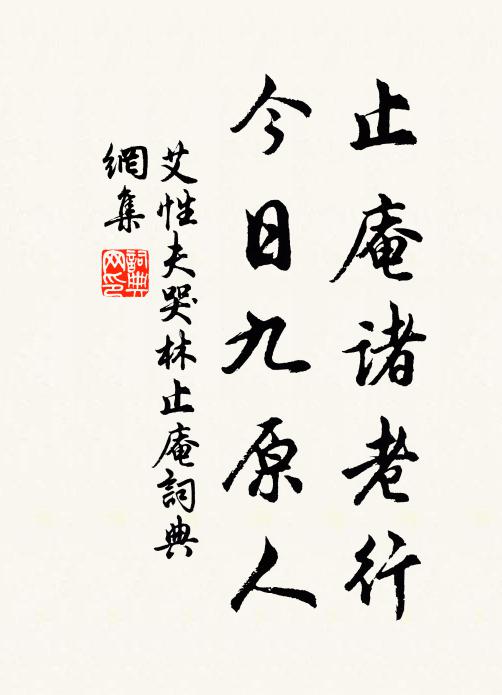 止庵諸老行
今日九原人
艾性夫哭林止庵詞典
網集
詞典
网印